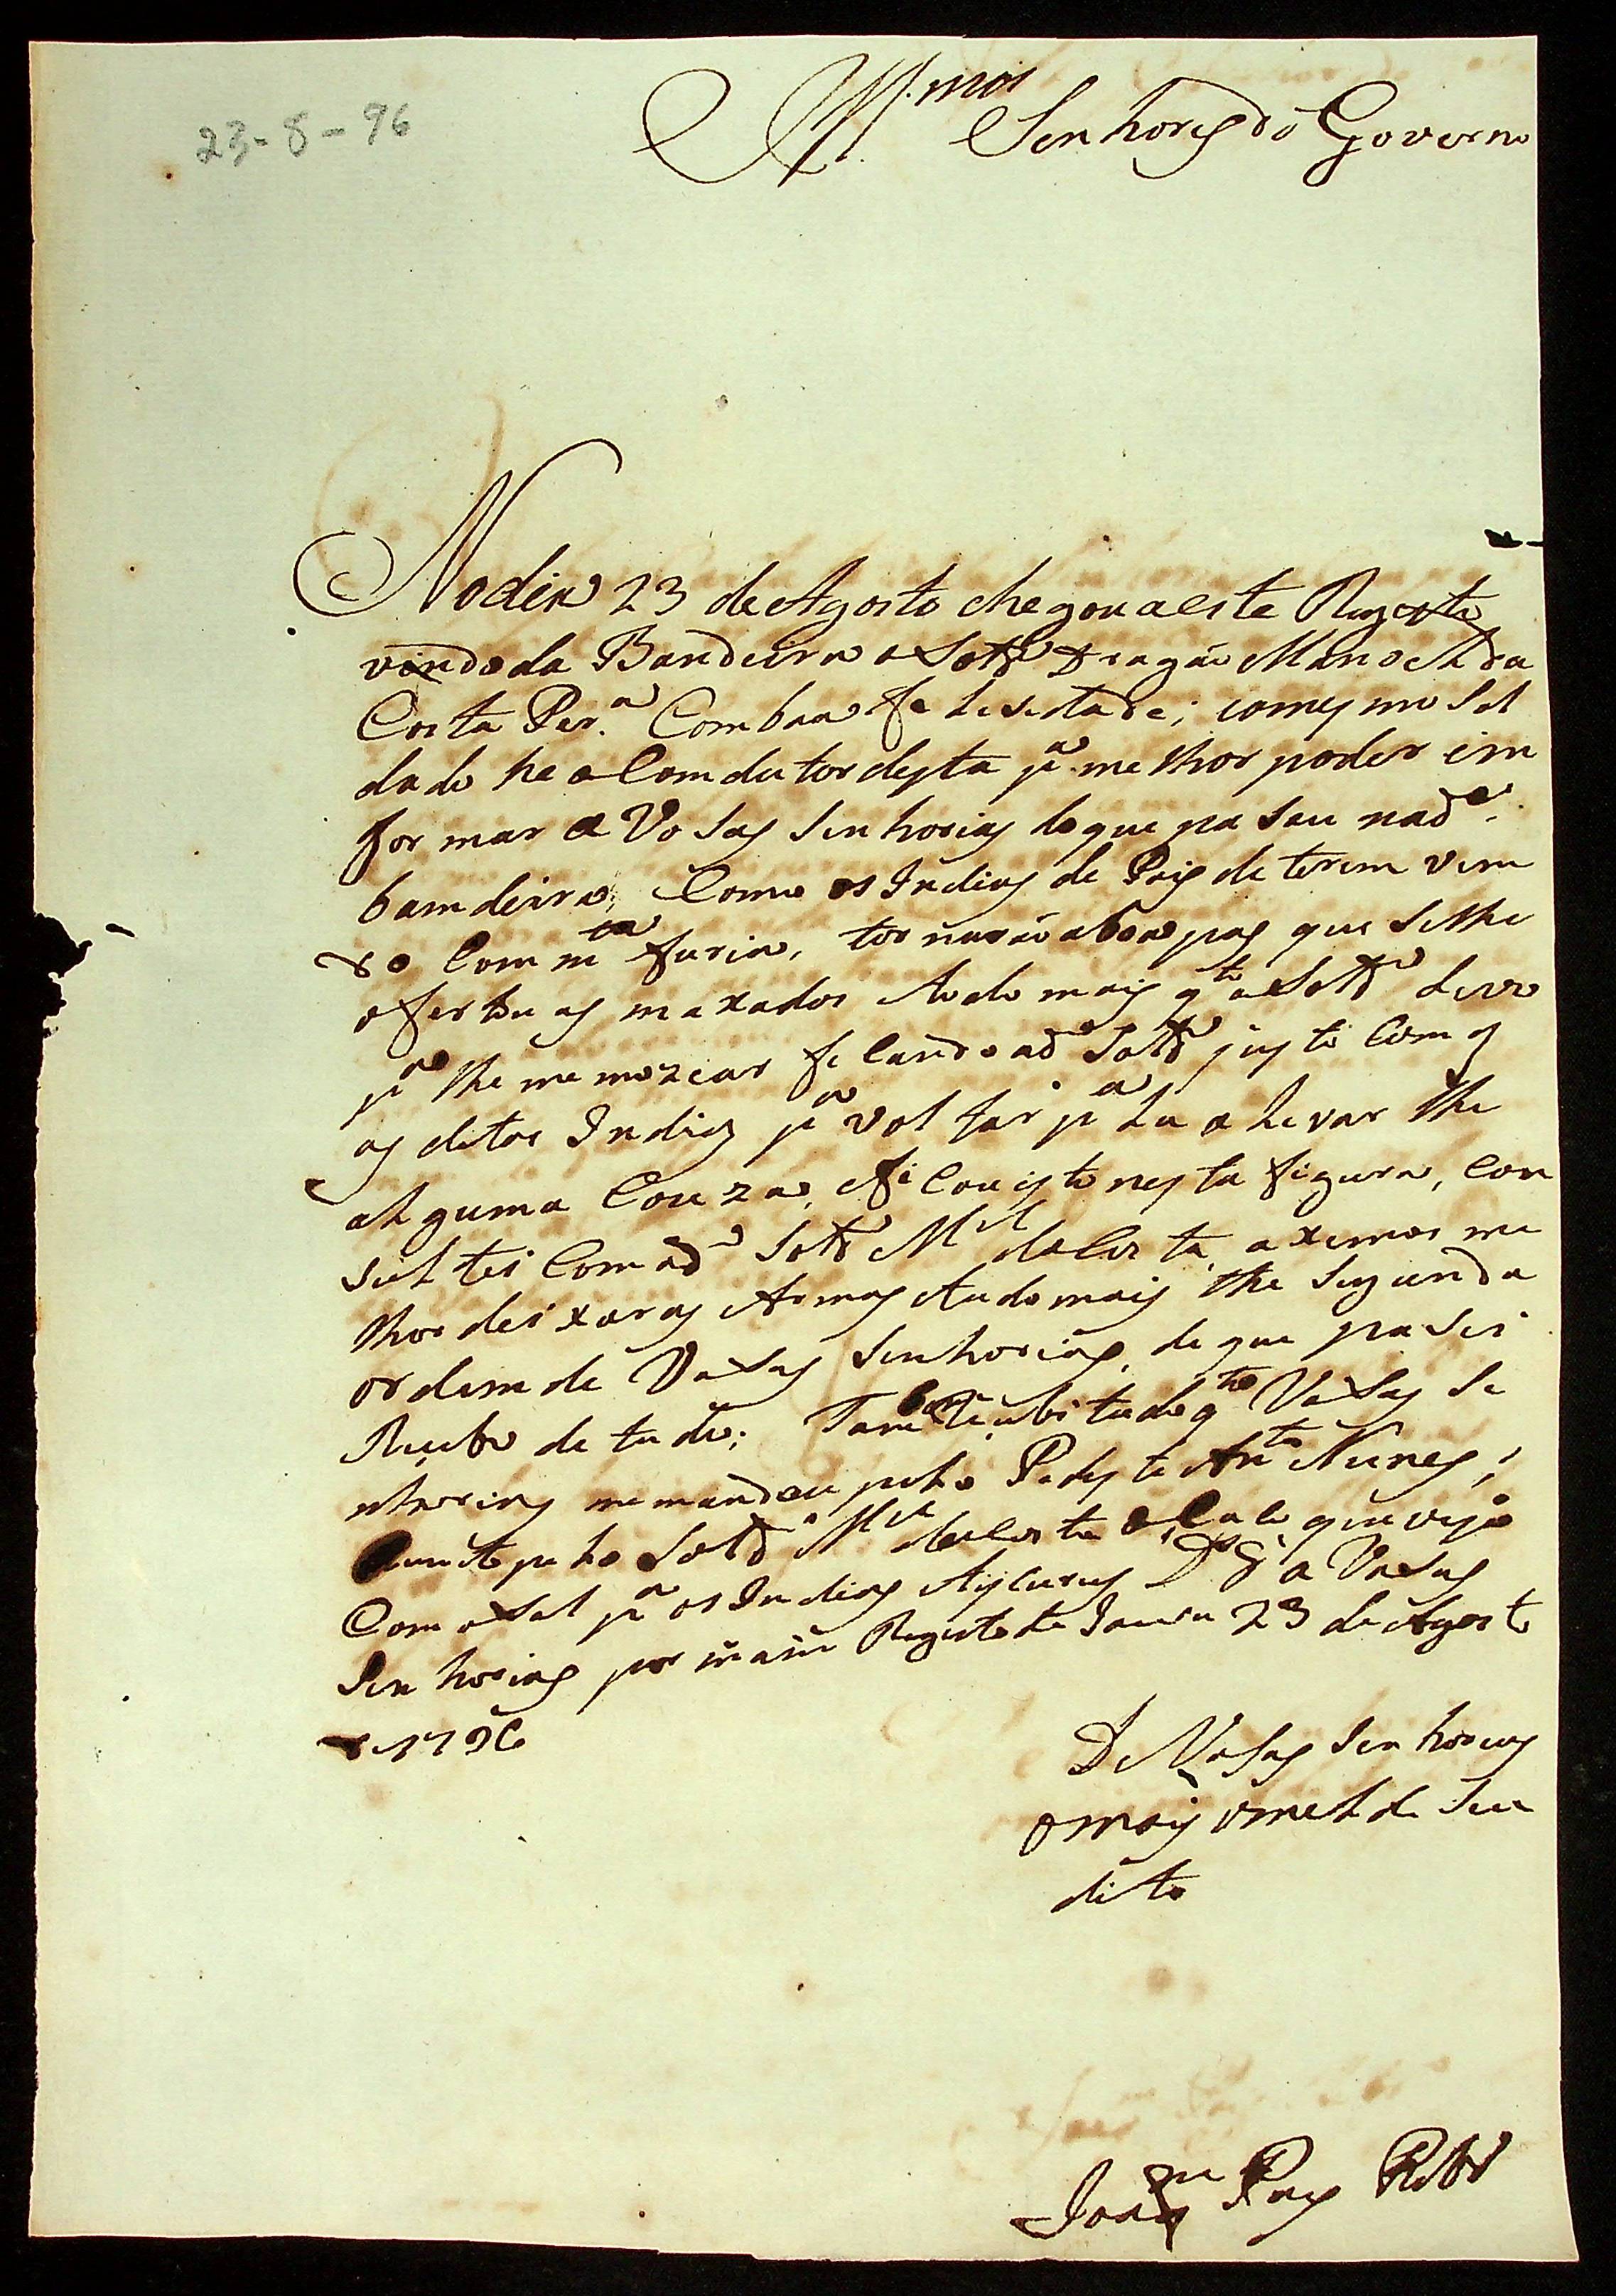 23-8-96
Ill.mos Senhores do Governo
No dia 23 de Agosto chegou a este Registo
vindo da Bandeira o Sold.o Dragão Manoel da
Costa Per.a Com boa felisidade; comesmo Sol
dado he o Comdutor desta p.a melhor poder im
formar a Vosas Senhorias do que pasou na d.a
bamdeira, Como os Indios de Pois de terem vim
do Com m.ta furia, tornarão a boa pas que Se lhe
ofertou os maxados e todo mais q.to o Sold.o Levo
p.a lhe memozear ficando o d.o Sold.o justo Com os
os ditos Indios p.a voltar p.a La a Levar lhe
alguma Couza, e ficou isto nesta figura, Con
sultei Com o d.o Sold.o M.el da Costa, axemos me
lhor deixar as Armas e tudo mais lhe Segunda
ordem de Vosas Senhorias, de que pasei
Recibo de tudo; Tambem Recebi tudo q.to Vosas Se
nhorias me mandou pelo Pedeste Ant.o Nunes,
e junto pelo Sold.o M.el da Costa o Cabo que veyo
Com o Sal p.a os Indios Ayicurus D.s G.e a Vosas
Senhorias por m.s an.s Registo de Jauru 23 de Agosto
de 1796
De Vosas Senhorias
o mais omelde Su
dito
Joaq.m Pays Rib.o